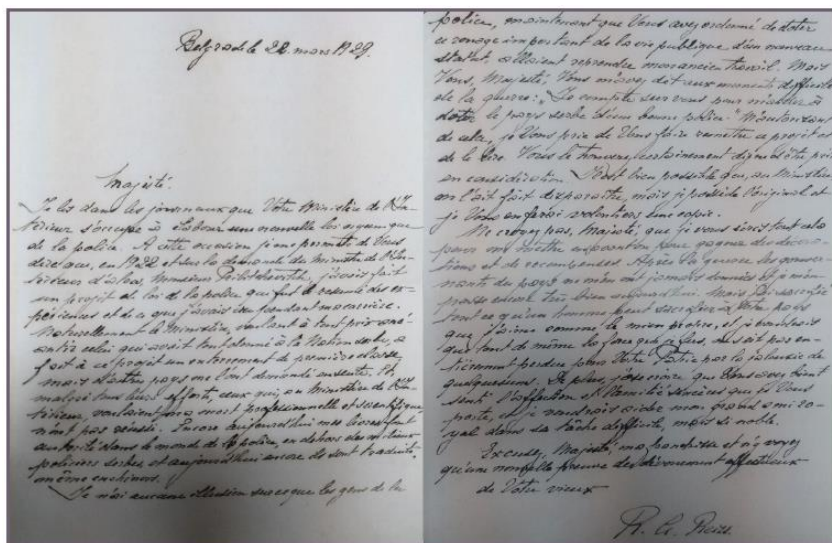 Belgrade le 22 mars 1929.
Majesté.
Je lis dans les journaux que Votre Ministère de l'In-
térieur s'occupe à élaborer une nouvelle loi organique
de la police. A cette occasion je me permets de Vous
dire que, en 1922 et sur la demande du Ministre de l'In-
térieur d'alors, Monsieur j'avais fait
un projet de loi de la police qui fut le résumé des ex-
périences et de ce que j'avais vu pendant ma carrière.
Naturellement le Ministère, voulant à tout prix ané-
antir celui qui avait tout donné à la Nation serbe, a
fait à ce projet un enterrement de première classe,
mais d'autres pays me l'ont demandé ensuite. Et,
malgré tous leurs efforts, ceux qui, au Ministère de l'In-
térieur, voulaient ma mort professionnelle et scientifique
n'ont pas réussi. Encore aujourd'hui mes livres font
autorité dans le monde de la police, en dehors des milieux
policiers serbes et aujourd'hui encore ils sont traduits
même en chinois.
Je n'ai aucune illusion sur ce que les gens de la
police, maintenant que Vous avez ordonné de doter
ce rouage important de la vie publique d'un nouveau
statut, allaient reprendre mon ancien travail. Mais
Vous, Majesté, Vous m'avez dit aux moments difficiles
de la guerre: "Je compte sur vous pour m'aider à
doter le pays serbe d'une bonne police." M'autorisant
de cela, je Vous prie de Vous faire remettre ce projet et
de le lire. Vous le trouverez certainement digne d'être pris
en considération. Il est bien possible que, au Ministère
on l'ait fait disparaître, mais je possède l'original et
je Vous en ferai volontiers une copie.
Ne croyez pas, Majesté, que je vous écris tout cela
pour me mettre en évidence, pour gagner des décora-
tions et de récompenses. Après la guerre les gouver-
nants du pays ne m'en ont jamais données et je m'en
passe encore très bien aujourd'hui. Mais j'ai sacrifié
tout ce qu'un homme peut sacrifier à Votre pays
que j'aime comme le mien propre, et je voudrais
que tout de même ce que j'ai fait, ne soit pas en-
tièrement perdu pour Votre Patrie par la jalousie de
quelques uns. De plus, j'ose croire que Vous avez
senti l'affection et l'amitié sincères que je Vous
porte, et je voudrais aider mon grand ami ro-
yal dans sa tâche difficile, mais si noble.
Excusez, Majesté, ma franchise et n'y voyez
qu'une nouvelle preuve du dévouement affectueux
de Votre vieux
R. A. Reiss.